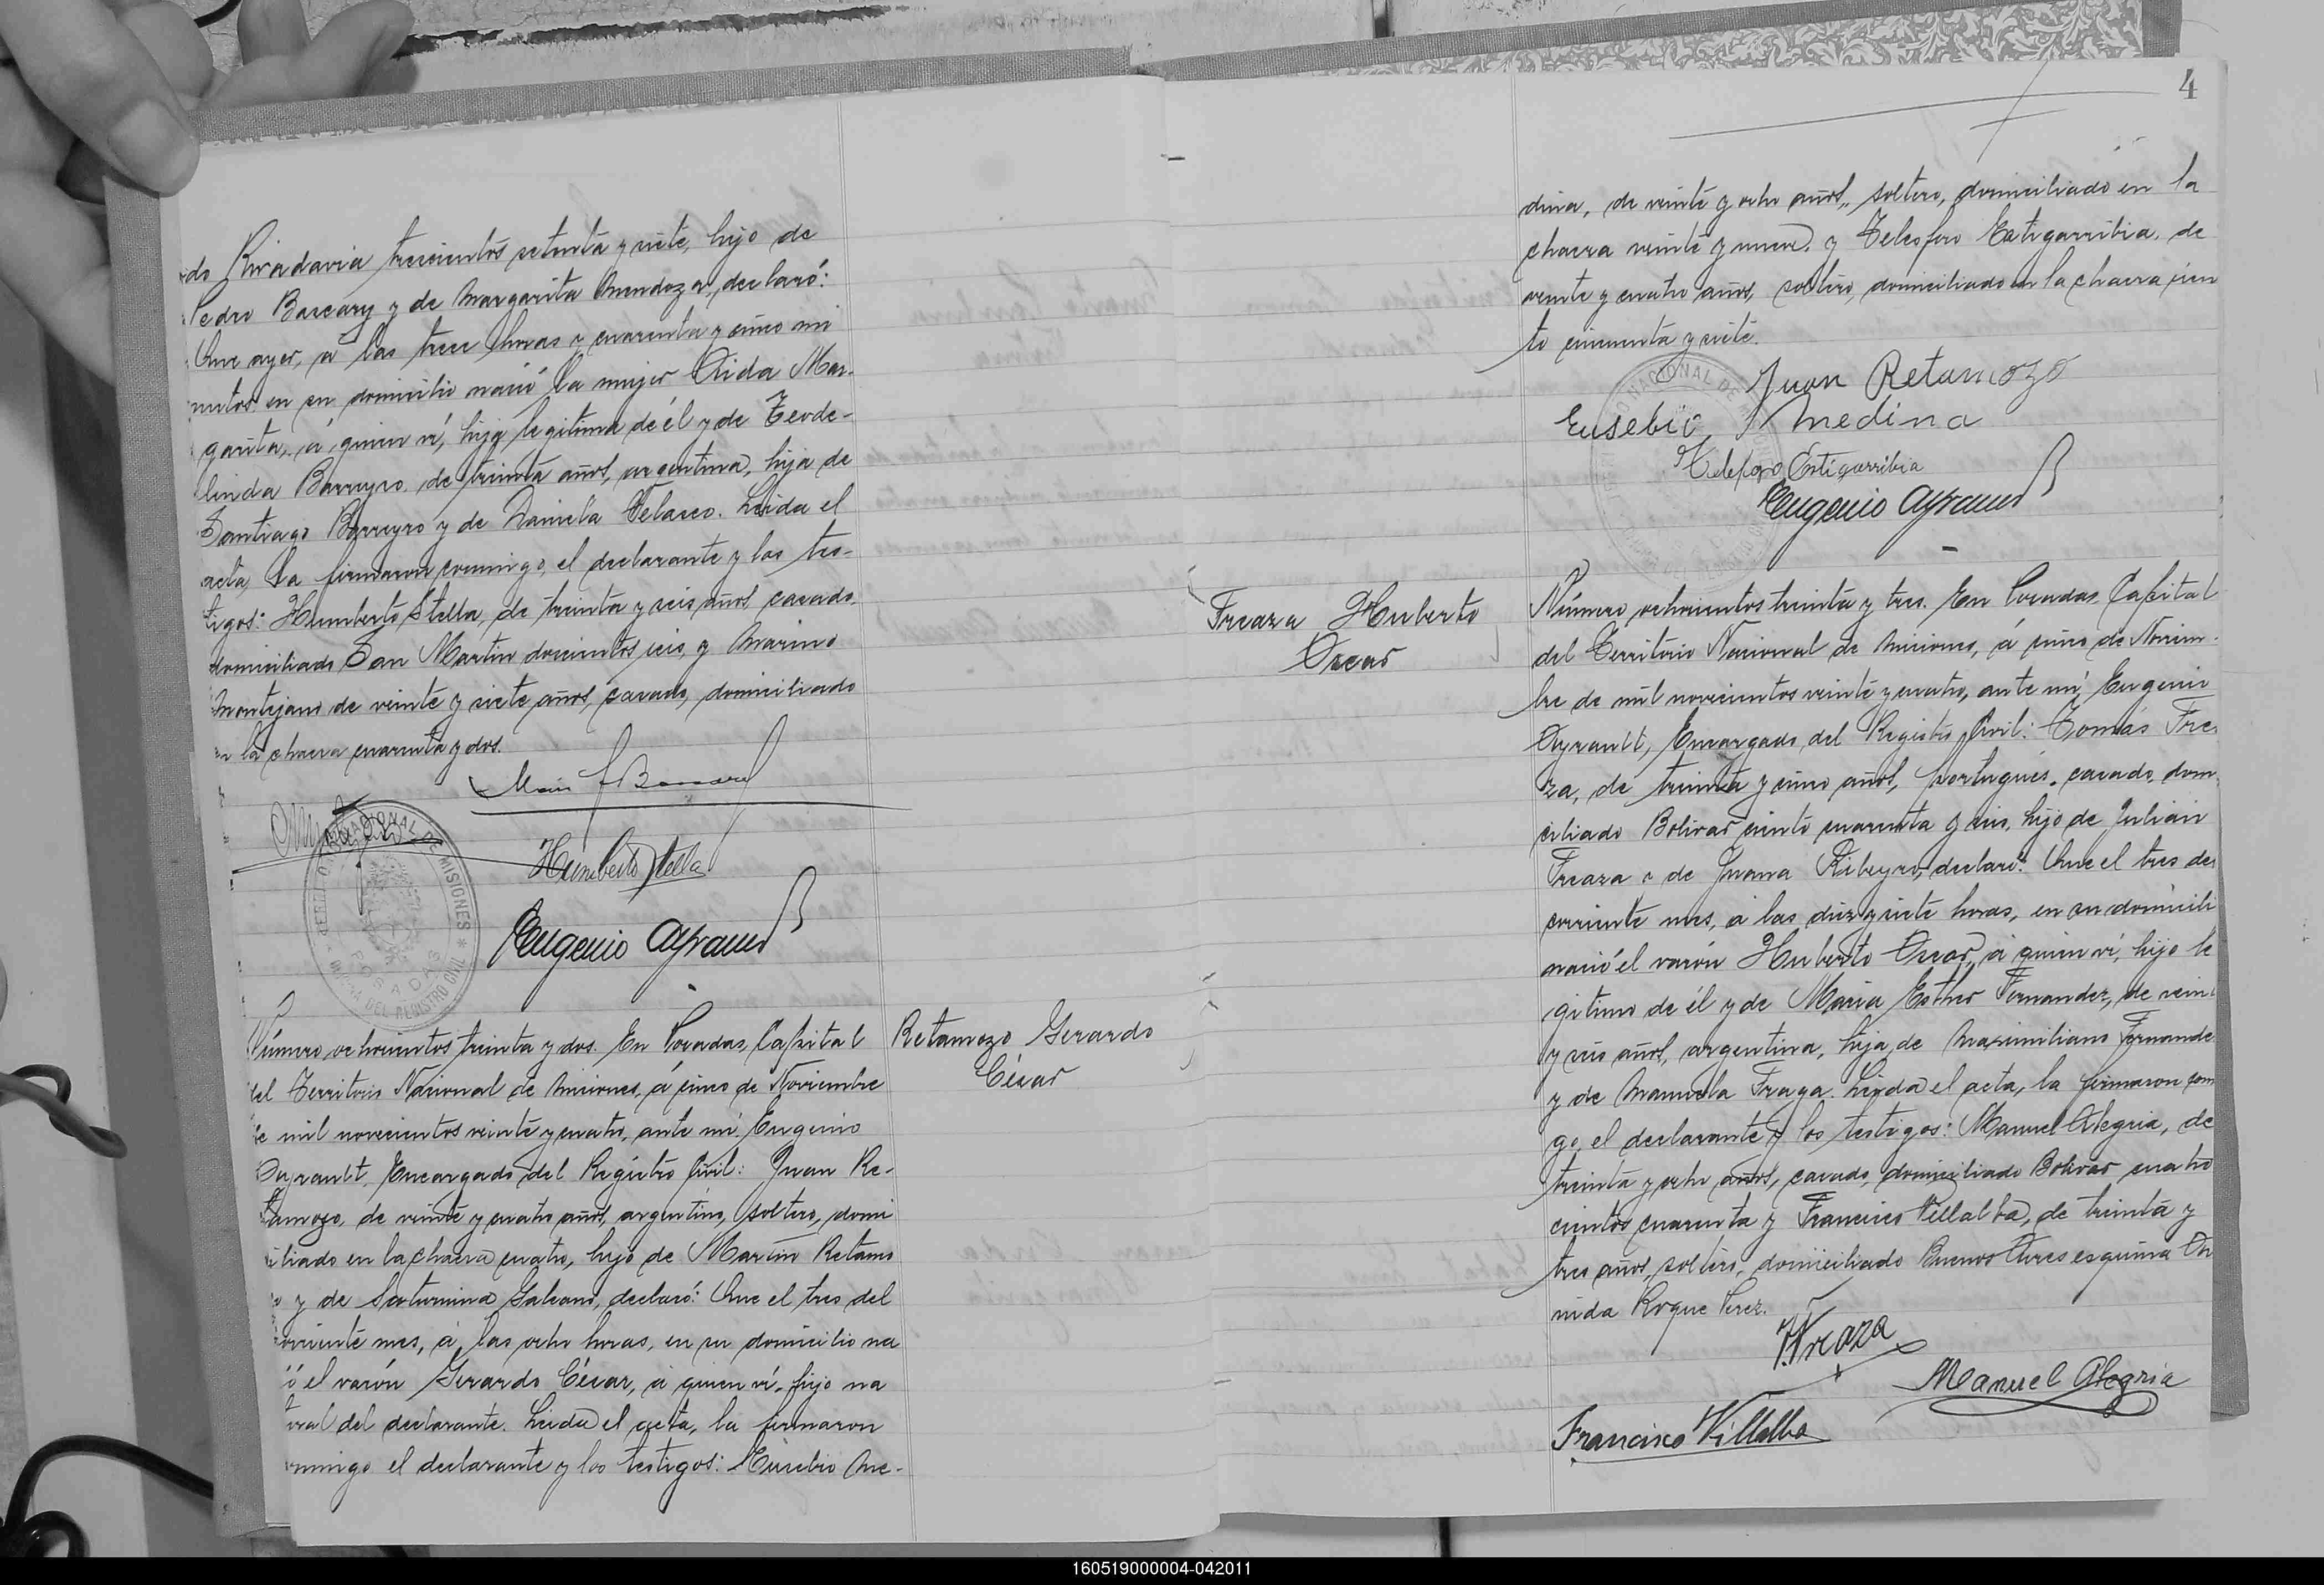 do Rivadavia trescientos setenta y siete, hijo de
Pedro Bascary y de Margarita Mendoza, declaró:
Que ayer, á las trece horas y cuarenta y cinco mi
nutos en su domicilio nació la mujer Aida Mar-
garita, á quien ví, hija legitima de él y de Teode-
linda Barreyro de treinta años, argentina, hija de
Santiago Barreyro y de Daniela Velasco. Leida el
acta, la firmaron conmigo, el declarante y los tes-
tigos: Humberto Stella, de treinta y seis años casado,
domiciliado San Martin doscientos seis, y Marino
Montejano de veinte y siete años, casado, domiciliado
en la chacra cuarenta y dos.
Humberto Stella
TERRITORIO NACIONAL DE MISIONES
POSADAS
OFICINA DEL REGISTRO CIVIL
Eugenio Ayrault
Retamozo Gerardo
César
Número ochocientos treinta y dos. En Posadas, Capital
del Territorio Nacional de Misiones, á cinco de Noviembre
de mil novecientos veinte y cuatro, ante mí: Eugenio
Ayrault, Encargado del Registro Civil: Juan Re-
tamozo, de veinte y cuatro años, argentino, soltero, domi
ciliado en la chacra cuatro, hijo de Martin Retamo
zo y de Saturnina Galeano, declaró: Que el tres del
corriente mes, á las ocho horas, en su domicilio na
ció el varón Gerardo César, á quien ví, hijo na
tural del declarante. Leida el acta, la firmaron
conmigo el declarante y los testigos: Eusebio Me-
4
dina, de veinte y ocho años, soltero, domiciliado en la
chacra veinte y nueve, y Telesforo Estigarribia, de
veinte y cuatro años, soltero, domiciliado en la chacra cien
to cincuenta y siete.
Juan Retamozo
Eusebio Medina
Telesforo Estigarribia
Eugenio Ayrault
Freaza Huberto
Oscar
Número ochocientos treinta y tres. En Posadas, Capital
del Territorio Nacional de Misiones, á cinco de Noviem-
bre de mil novecientos veinte y cuatro, ante mí, Eugenio
Ayrault, Encargado del Registro Civil: Tomás Frea
za, de treinta y cinco años, portugués, casado, domi
ciliado Bolivar ciento cuarenta y seis, hijo de Julián
Freaza y de Juana Ribeyro, declaró: Que el tres del
corriente mes, á las diez y siete horas, en su domicili
nació el varón Huberto Oscar, á quien ví, hijo le
gitimo de él y de Maria Esther Fernandez, de vein
y seis años, argentina, hija de Maximiliano Fernande
y de Manuela Fraga. Leida el acta, la firmaron con
go, el declarante y los testigos: Manuel Alegria, de
treinta y ocho años, casado, domiciliado Bolivar cuatro
cientos cuarenta y Francisco Villalba, de treinta y
tres años, soltero, domiciliado Buenos Aires esquina Av
nida Roque Perez.
T. Freaza
Manuel Alegria
Francisco Villalba
160519000004-042011